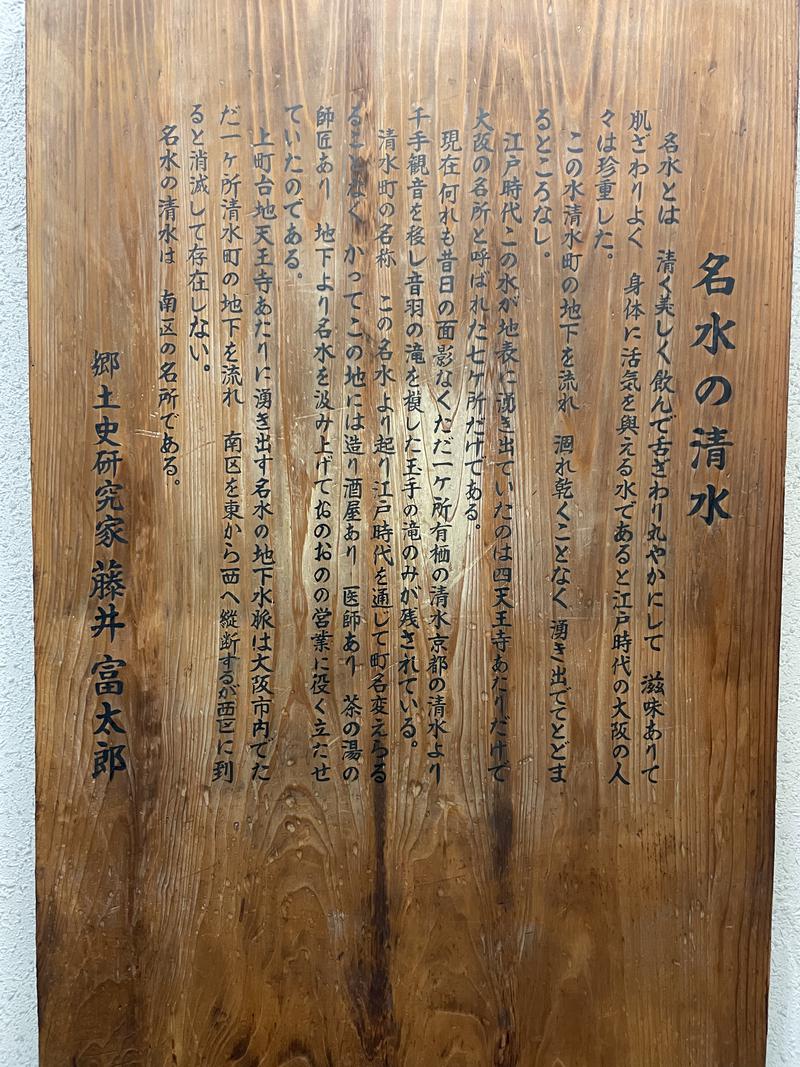 名水の清水
名水とは 清く美しく飲んで舌ざわり丸やかにして 滋味ありて
肌ざわりよく 身体に活気を與える水であると江戸時代の大阪の人
々は珍重した。
この水清水町の地下を流れ 涸れ乾くことなく 湧き出ててとどま
るところなし。
江戸時代この水が地表に湧き出ていたのは四天王寺あたりだけで
大阪の名所と呼ばれた七ケ所だけである。
現在何れも昔日の面影なくただ一ケ所有栖の清水京都の清水より
千手観音を移し音羽の滝を模した玉手の滝のみが残されている。
清水町の名称 この名水より起り江戸時代を通じて町名変えらる
ることなく かってこの地には造り酒屋あり 医師あり 茶の湯の
師匠あり 地下より名水を汲み上げておのおのの営業に役く立たせ
ていたのである。
上町台地天王寺あたりに湧き出す名水の地下水脈は大阪市内でた
だ一ケ所清水町の地下を流れ 南区を東から西へ縦断するが西区に到
ると消滅して存在しない。
名水の清水は 南区の名所である。
郷土史研究家 藤井 富太郎